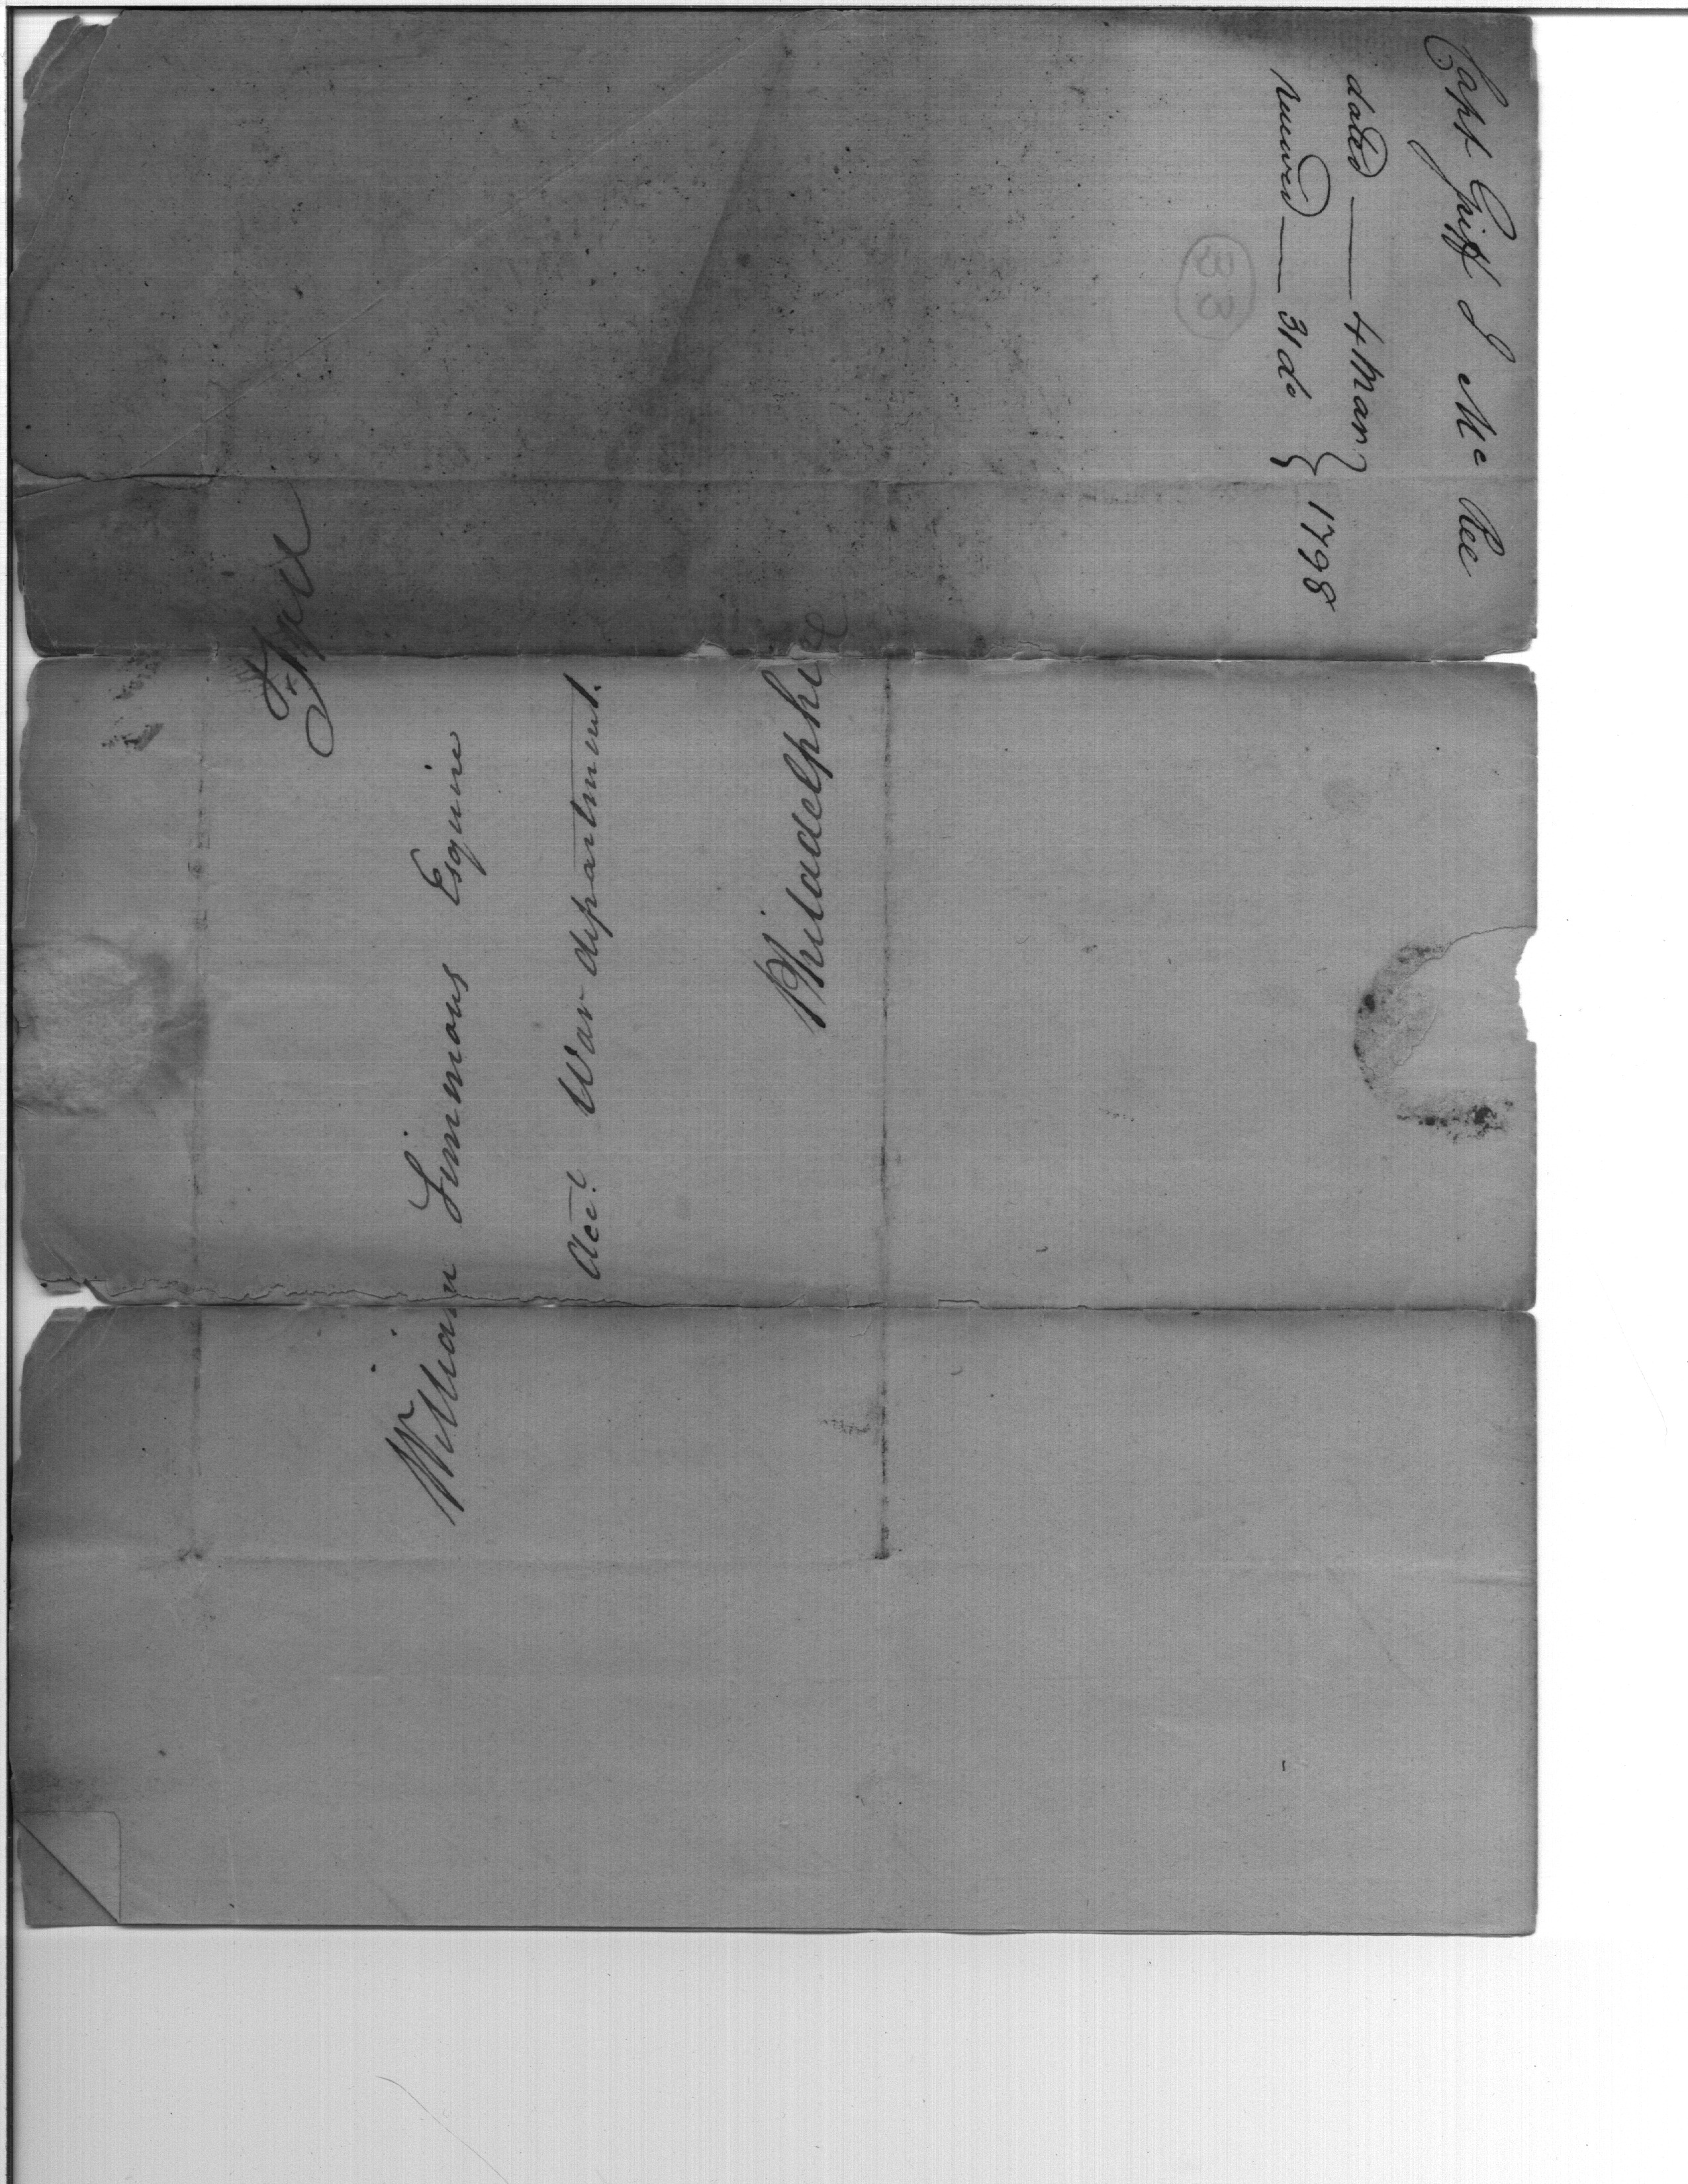 Capt Griff J McRee
dated — 4 Mar
received — 31 do } 1798
33
Free
William Simmons Esquire
Acct. War department.
Philadelphia